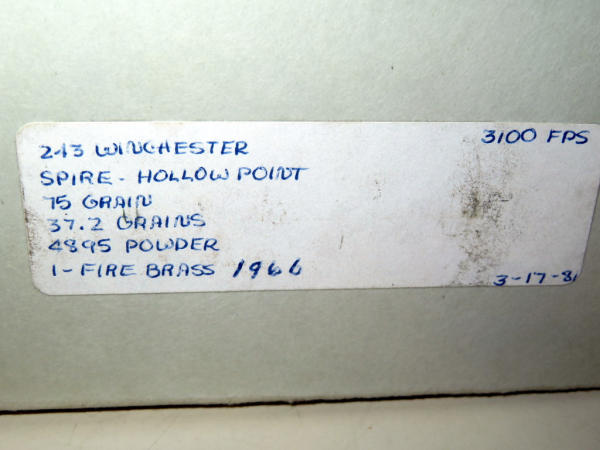 243 WINCHESTER 3100 FPS
SPIRE - HOLLOW POINT
75 GRAIN
37.2 GRAINS
4895 POWDER
1-FIRE BRASS 1966
3-17-81